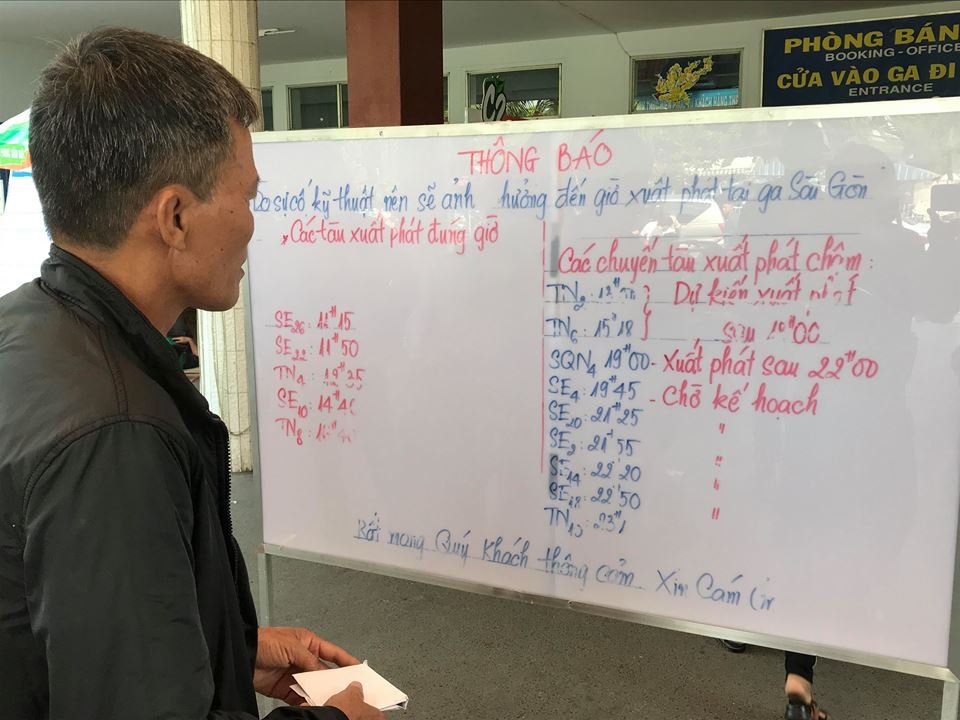 PHÒNG BÁN
BOOKING - OFFICE
CỬA VÀO GA ĐI
ENTRANCE
C2
THÔNG BÁO
Do sự cố kỹ thuật nên sẽ ảnh hưởng đến giờ xuất phát tại ga Sài Gòn
* Các tàu xuất phát đúng giờ
SE26: 11H15
SE22: 11H50
TN4: 13H25
SE10: 14H4
TN8:
Các chuyến tàu xuất phát chậm:
TN2: } Dự kiến xuất phát
TN6: 15H18 } sau 00
SQN4 19H00 - Xuất phát sau 22H00
SE4: 19H45 - Chờ kế hoạch
SE20: 21H25 "
SE2: 21H55 "
SE14: 22H20 "
SE18: 22H50 "
Rất mong Quý Khách thông cảm. Xin Cám ơn